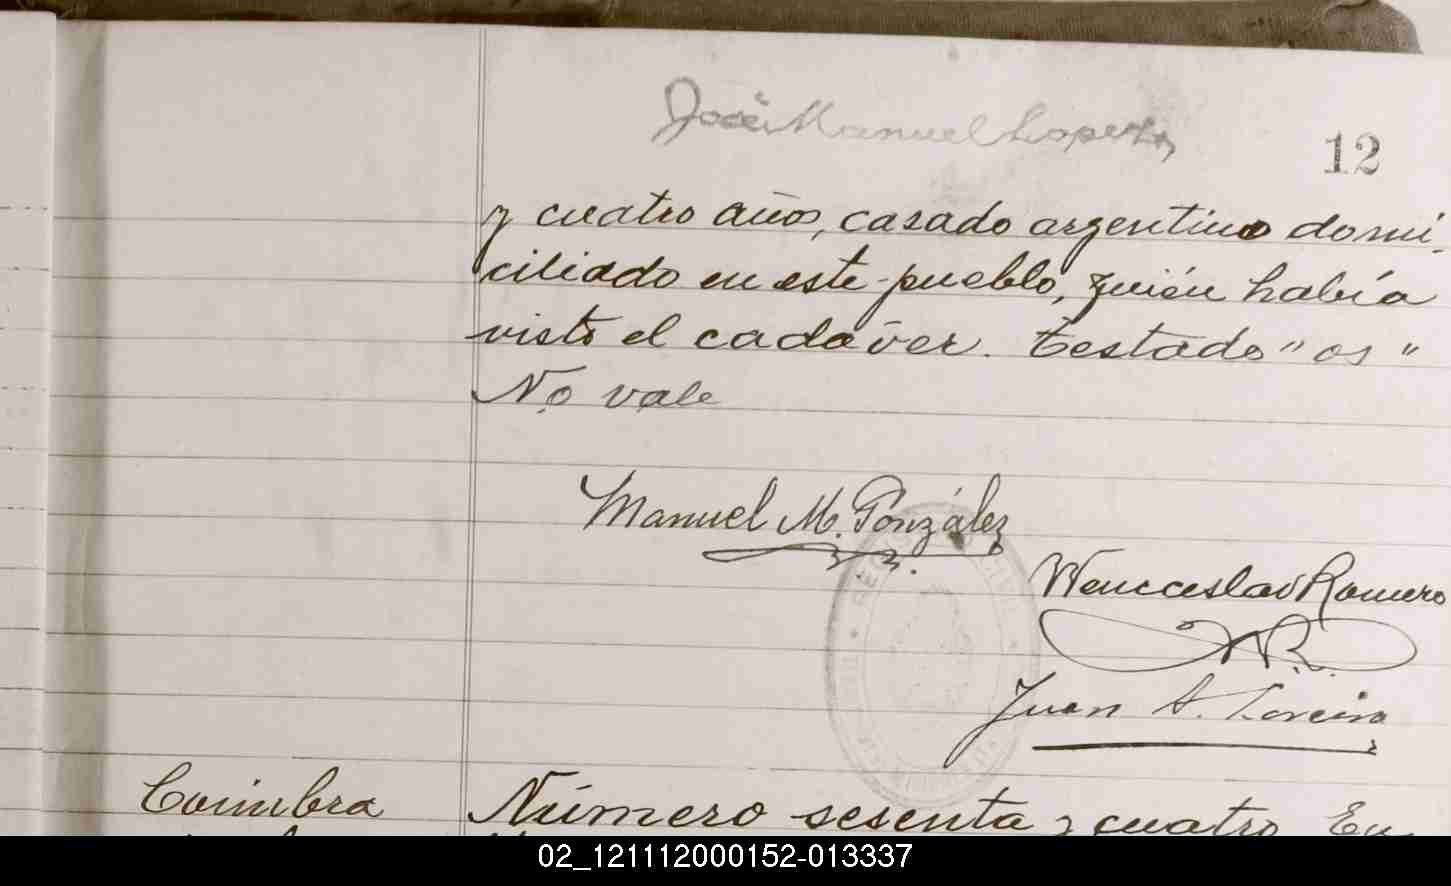 José Manuel Lopez
12
y cuatro años, casado argentino domi-
ciliado en este pueblo, quién había
visto el cadáver. Testado "os"
No vale
Manuel M. González
Wenceslao Romero
W R.
Juan A.
Coimbra Número sesenta y cuatro En
02_121112000152-013337